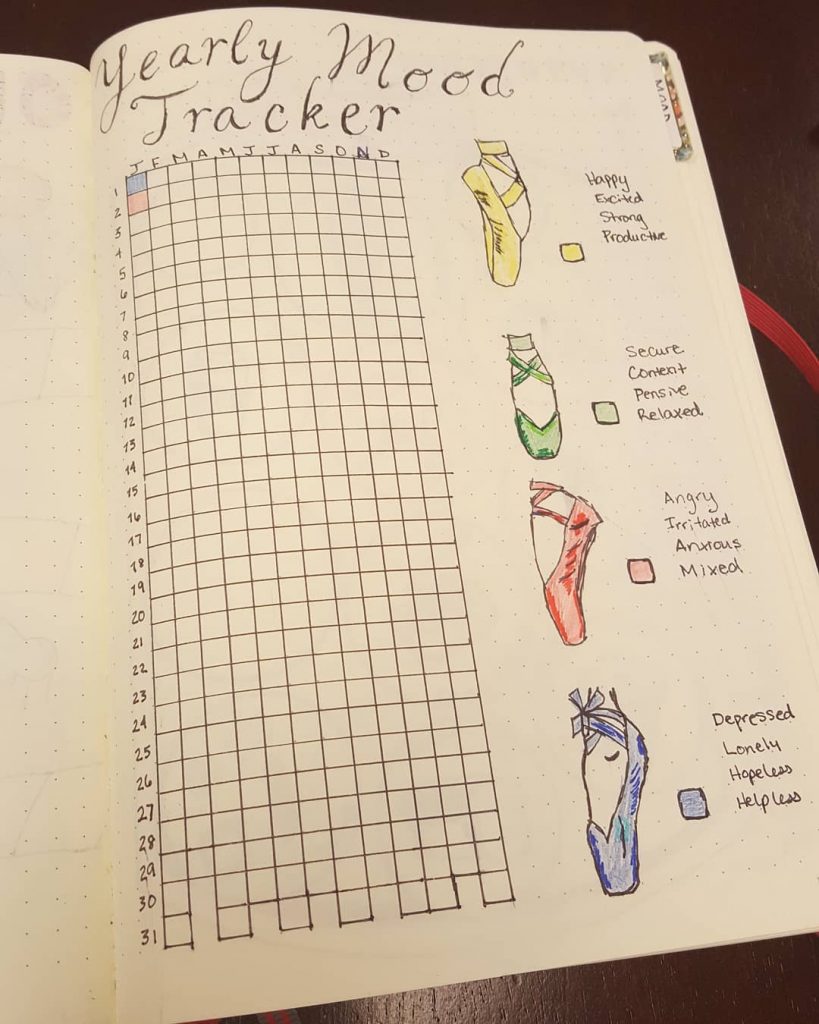 Yearly Mood
Tracker
J F M A M J J A S O N D
1
2
3
4
5
6
7
8
9
10
11
12
13
14
15
16
17
18
19
20
21
22
23
24
25
26
27
28
29
30
31
Happy
Excited
Strong
Productive
Secure
Content
Pensive
Relaxed
Angry
Irritated
Anxious
Mixed
Depressed
Lonely
Hopeless
Helpless
MOOD